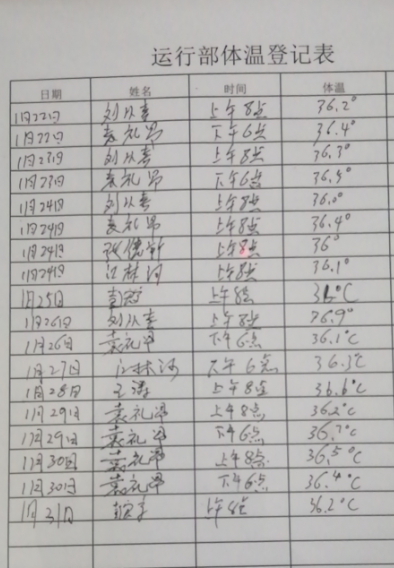 运行部体温登记表
日期 姓名 时间 体温
1月22日 刘从春 上午8点 36.2°
1月22日 袁礼昂 下午6点 36.4°
1月23日 刘从春 上午8点 36.3°
1月23日 袁礼昂 下午6点
1月24日 刘从春 上午8点
1月24日 袁礼昂 上午8点 36.4°
1月24日 上午8点 36°
1月24日 江林河 上午8点 36.1°
1月25日 上午8点
1月26日 刘从春 上午8点
1月26日 袁礼昂 下午6点 36.1°C
1月27日 江林河 下午6点 36.3℃
1月28日 王涛 上午8点 36.6°C
1月29日 袁礼昂 上午8点 36.2°C
1月29日 袁礼昂 下午6点
1月30日 袁礼昂 上午8点 36.5°C
1月30日 袁礼昂 下午6点 36.4°C
1月31日 上午8点 36.2°C